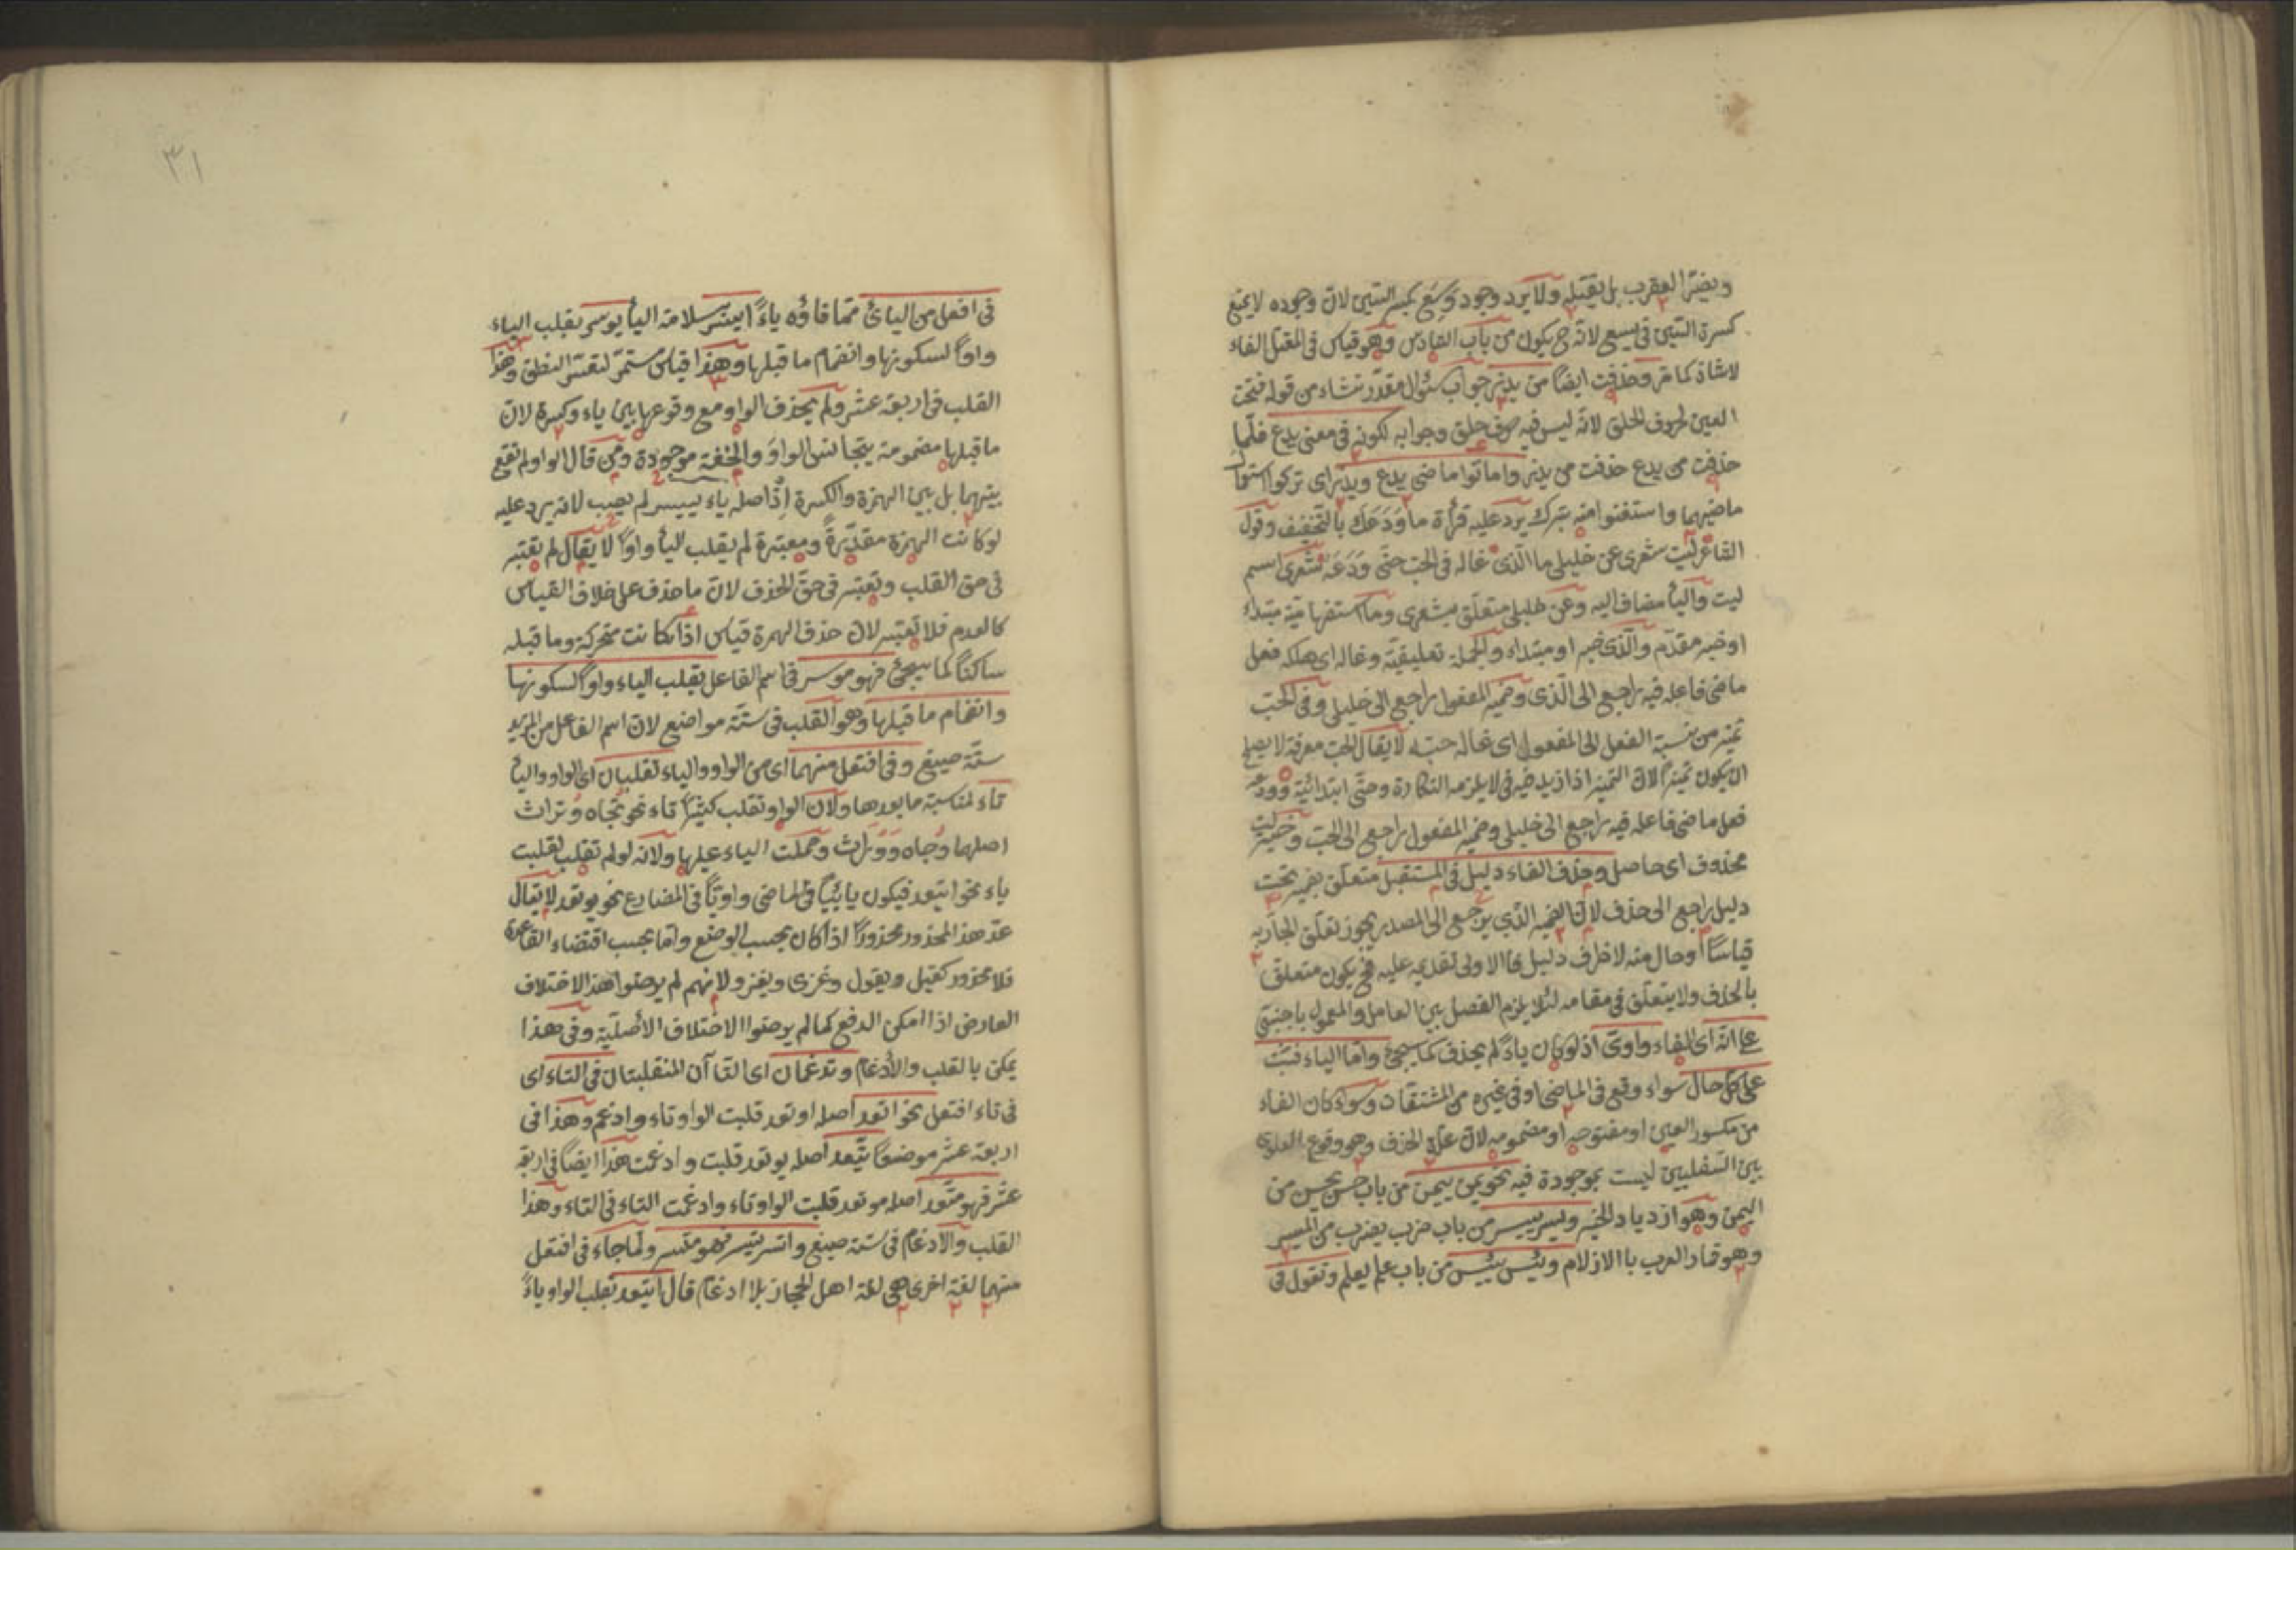 ويضرّ العقرب بل يقتله ولا يرد وجود وَسِعَ بكسر السّين لانّ وجوده لا يمنع
كسرة السّين فى يسع لانّه ح يكون من باب السّادس وهو قياس فى المعتل الفاء
لا شاذ كما مرّ وحذفت ايضاً من يذر جواب سئوال مقدّر نشاء من قوله فتحت
العين لحروف الحلق لانّه ليس فيه حرف حلق وجوابه لكونه فى معنى يدع فلمّا
حذفت من يدع حذفت من يذر واماتوا ماضى يدع ويذر اى تركوا استعمال
ماضيهما واستغنوا منه بترك يرد عليه قرأة ما وَدَعَكَ بالتّخفيف وقول
الشّاعر ليت شعرى عن خليلى ما الّذى غاله فى الحبّ حتّى وَدَعَه شعرى اسم
ليت واليأ مضاف اليه وعن خليلى متعلّق بشعرى وما استفهاميّة مبتداء
او خبر مقدّم والّذى خبر او مبتداء والجملة تعليقيّة وغاله اى هلكه فعل
ماضى فاعله فيه راجع الى الّذى وضمير المفعول راجع الى خليلى وفى الحبّ
تميّز من نسبة الفعل الى المفعول اى غاله حبّه لا يقال الحبّ معرفة لا يصلح
ان يكون تميزاً لانّ التميز اذا زيد فيه فى لا يلزمه النكارة وحتّى ابتدائيّة وودعه
فعل ماضى فاعله فيه راجع الى خليلى وضمير المفعول راجع الى الحبّ وخبر ليت
محذوف اى حاصل وحذف الفاء دليل فى المستقبل متعلّق بضمير تحت
دليل راجع الى حذف لانّ الضمير الّذى يرجع الى المصدر يجوز تعلّق الجارّ به
قياسًا او حال منه لا ظرف دليل كما الاولى تقديمه عليه فح يكون متعلق
بالحذف ولا يتعلّق فى مقامه لئلا يلزم الفصل بين العامل والمعمول باجنبىّ
على انّه اى الفاء واوىّ اذ لو كان يادً لم يحذف كما يجئ وامّا الياء فتثبت
على كلّ حال سواء وقع فى الماضى او فى غيره من المشتقّات وسواء كان الفاء
من مكسور العين او مفتوحه او مضمومه لانّ علّة الحذف وهو وقوع العلوىّ
بين السّفليين ليست بموجودة فيه نحو يمن ييمن من باب حسن يحسن من
اليمن وهو ازدياد الخير ويسر ييسر من باب ضرب يضرب من الميسر
وهو قمار العرب باالازلام ويئس ييئس من باب علم يعلم وتقول فى
٣١
فى افعل من اليائ ممّا فاؤه ياءً ايسر سلامة اليأ يوسر بقلب الياء
واواً لسكونها وانضمام ما قبلها وهذا قياس مستمرّ لتعسّر النطق وهذا
القلب فى اربعة عشر ولم يحذف الواو مع وقوعها بين ياء وكسرة لانّ
ما قبلها مضمومة يتجانس الواوَ والخفّة موجودة ومن قال الواو لم تقع
بينهما بل بين الهمزة والكسرة اذ اصله ياء ييسر لم يصب لانه يرد عليه
لو كانت الهمزة مقدّرةً ومعتبرة لم يقلب ليأ واواً لا يقال لم يعتبر
فى حق القلب وتعتبر فى حقّ الحذف لانّ ما حذف على خلاف القياس
كالعدم فلا تعتبر لانّ حذف الهمزة قياس اذا كانت متحركة وما قبله
ساكناً كما سيجئ فهو موسر فى اسم الفاعل بقلب الياء واواً لسكونها
وانضمام ما قبلها وهو القلب فى ستّة مواضع لانّ اسم الفاعل من المزيد
ستّة صيغ وفى افتعل منهما اى من الواو والياء تقلبان اى الواو واليأ
تاء لمناسبة ما بعدها ولان الواو تقلب كثيراً تاء نحو تُجاه وتُراث
اصلهما وُجاه ووُراث وحملت الياء عليها ولانّه لو لم تقلب لقلبت
ياء نحو ايتعد فيكون يائيّاً فى الماضى واويّاً فى المضارع نحو يوتعد لا يقال
عدّ هذا المحذور محذوراً اذا كان بحسب الوضع وامّا بحسب اقتضاء القاعدة
فلا محذور كقيل ويقول وغزى ويغزو لانّهم لم يرضوا هذا الاختلاف
العارض اذا امكن الدفع كما لم يرضوا الاختلاف الأصليّة وفى هذا
يمكن بالقلب والأدغام وتدغمان اى التّاآن المنقلبتان فى التاء اى
فى تاء افتعل نحو اتّعد اصله اوتعد قلبت الواو تاء وادغم وهذا فى
اربعة عشر موضعاً يتّعد اصله يوتعد قلبت وادغمت هذا ايضاً فى اربعة
عشر فهو متّعد اصله موتعد قلبت الواو تاء وادغمت التاء فى التاء وهذا
القلب والادغام فى ستة صيغ واتسر يتّسر فهو متّسر ولمّا جاء فى افتعل
منهما لغة اخرى هى لغة اهل الحجاز بلا ادغام قال ايتعد بقلب الواو ياءً